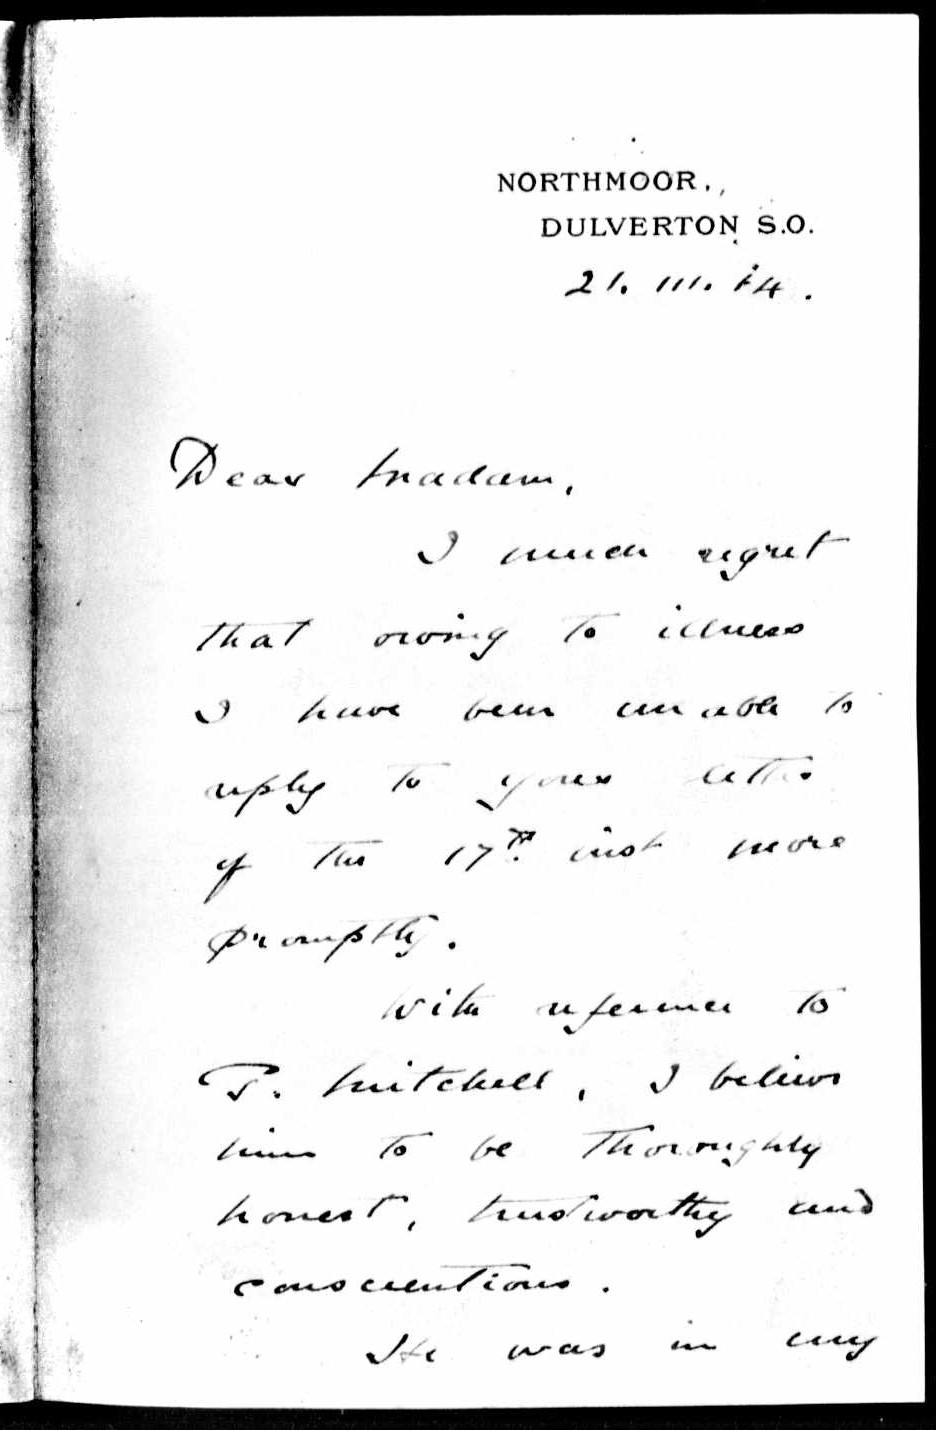 NORTHMOOR,
DULVERTON S.O.
21. III. 14.
Dear Madam,
I much regret
that owing to illness
I have been unable to
reply to your letter
of the 17th inst more
promptly.
With reference to
P. Mitchell, I believe
him to be thoroughly
honest, trustworthy and
conscientious.
He was in my